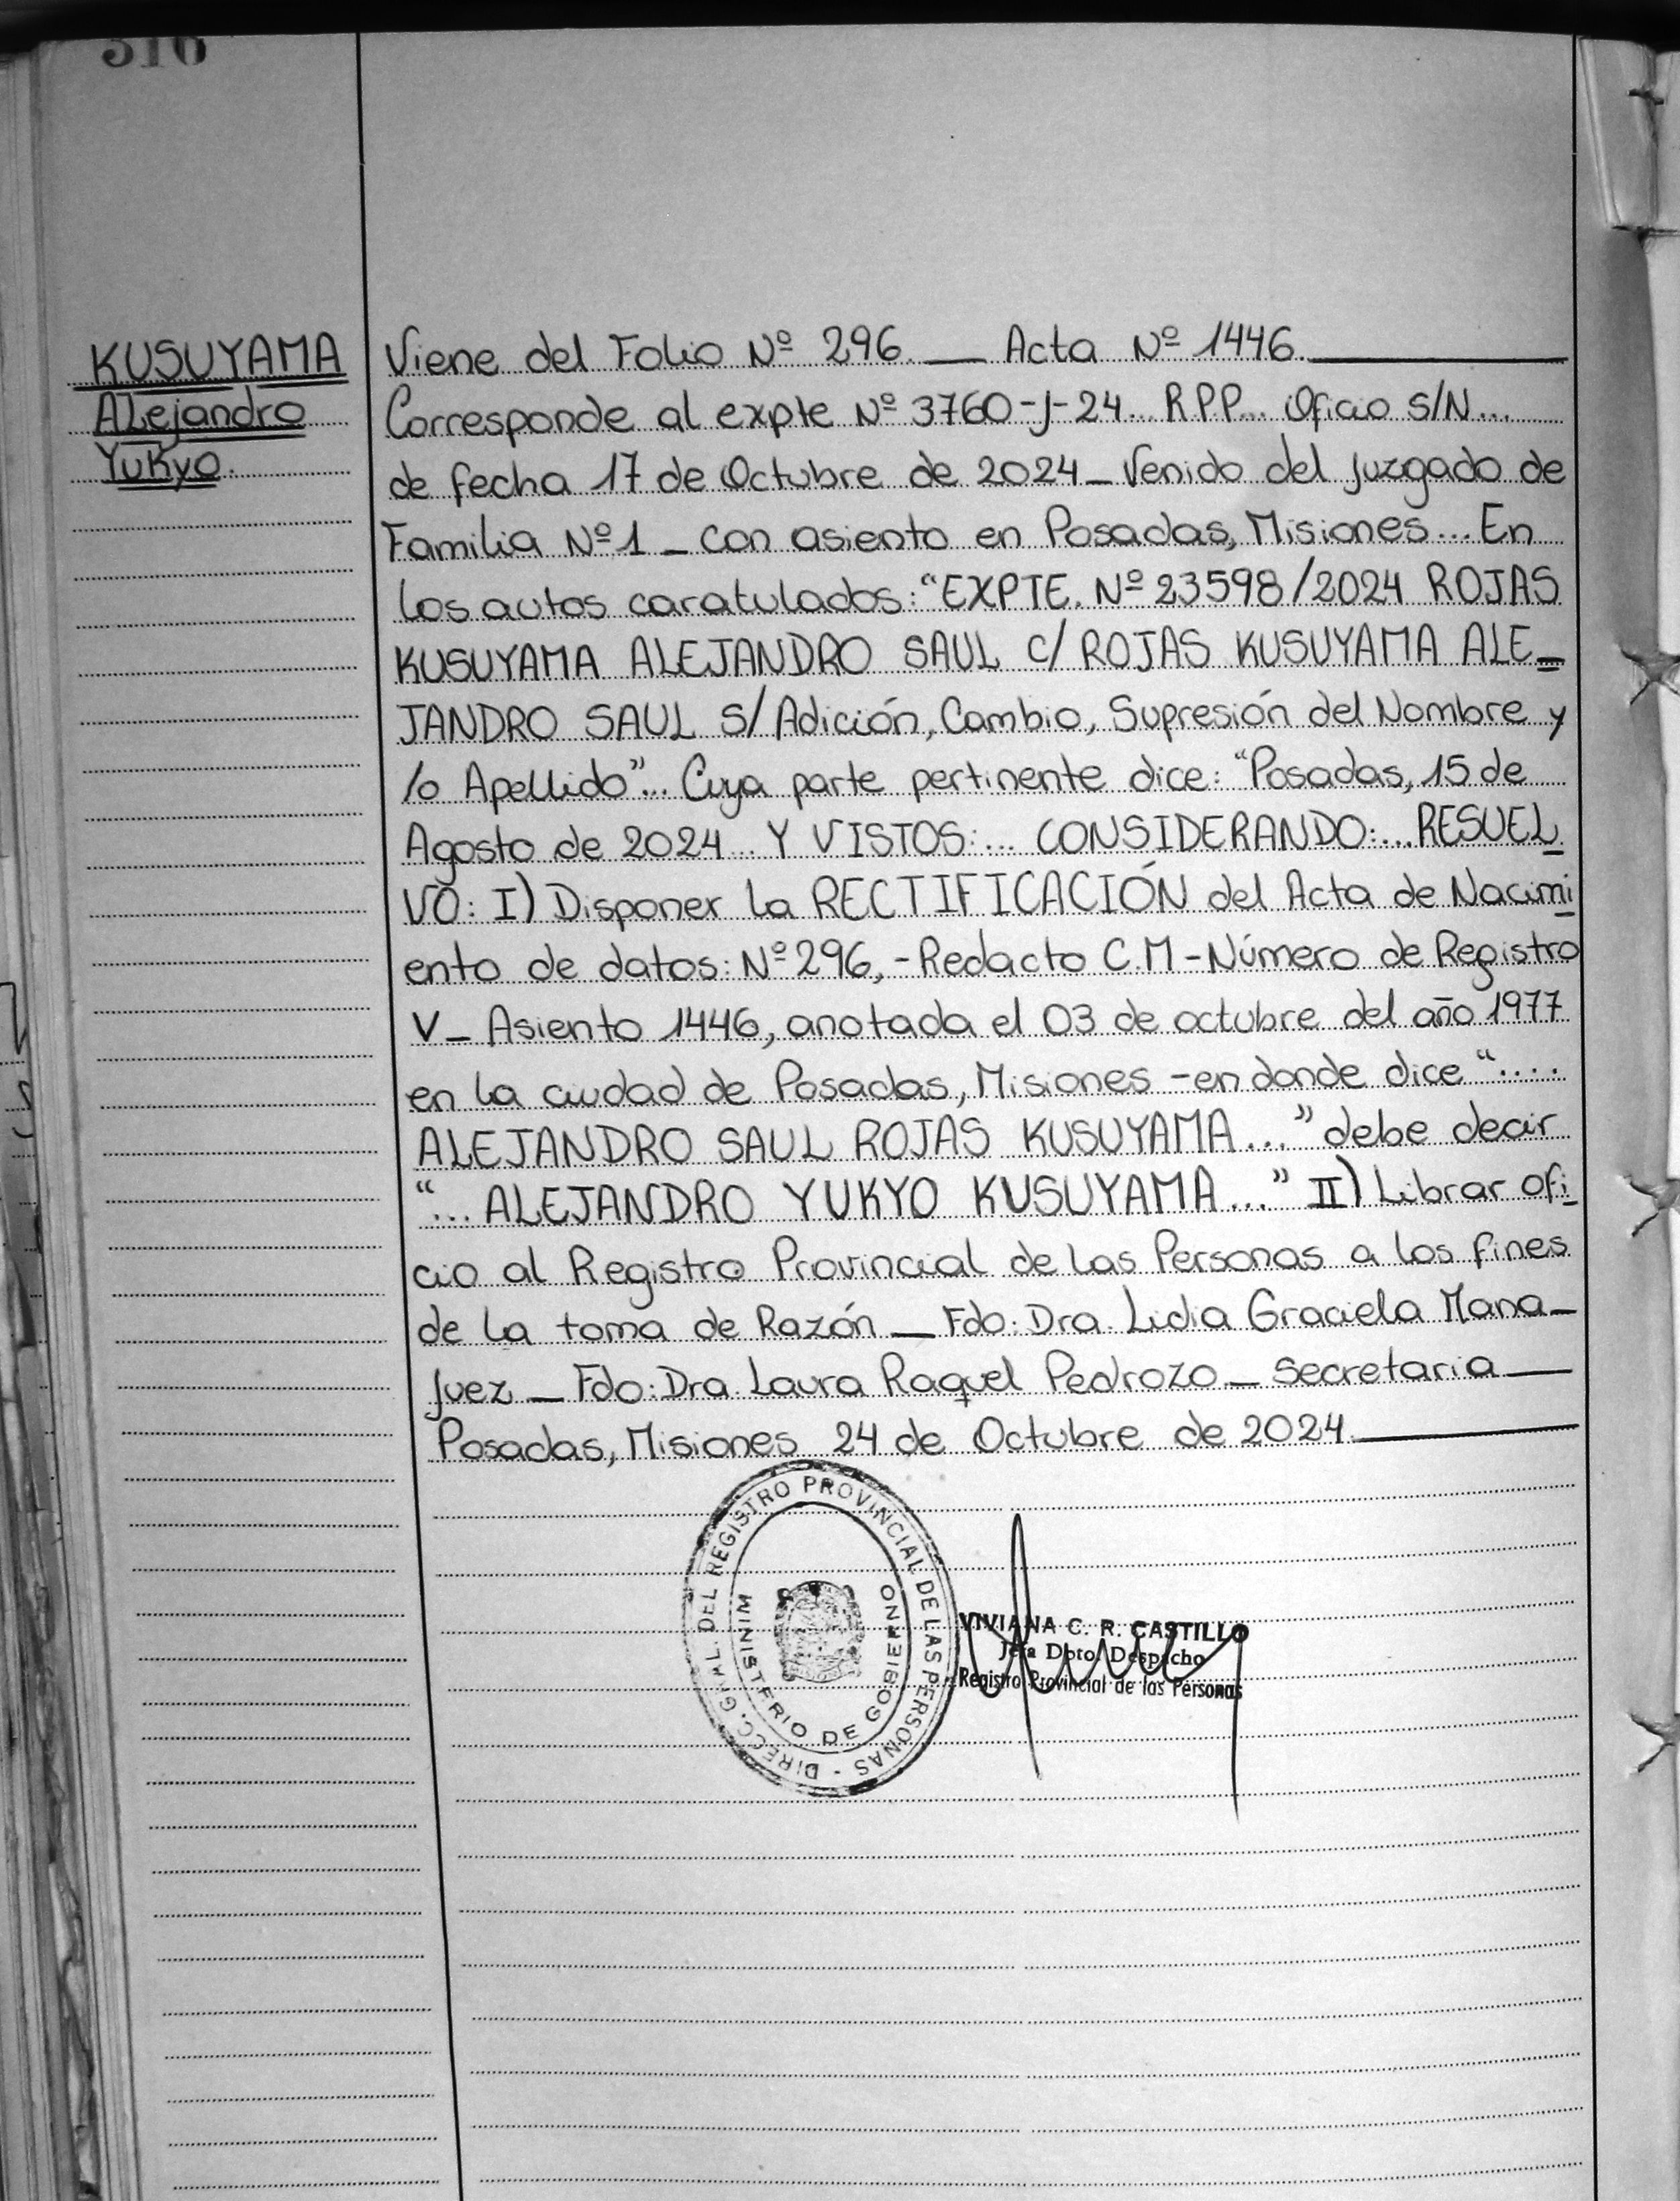 316
KUSUYAMA
Alejandro
Yukyo.
Viene del Folio Nº 296. — Acta Nº 1446.
Corresponde al expte Nº 3760-J-24... R.P.P... Oficio S/N...
de fecha 17 de Octubre de 2024 _ Venido del Juzgado de
Familia Nº 1 _ con asiento en Posadas, Misiones... En
los autos caratulados: "EXPTE. Nº 23598/2024 ROJAS
KUSUYAMA ALEJANDRO SAUL C/ ROJAS KUSUYAMA ALE_
JANDRO SAUL S/ Adición, Cambio, Supresión del Nombre y
/o Apellido"... Cuya parte pertinente dice: "Posadas, 15 de
Agosto de 2024... Y VISTOS:... CONSIDERANDO:... RESUEL_
VO: I) Disponer la RECTIFICACIÓN del Acta de Nacimi_
ento de datos: Nº 296, - Redacto C.M - Número de Registro
V_ Asiento 1446, anotada el 03 de octubre del año 1977
en la ciudad de Posadas, Misiones - en donde dice "....
ALEJANDRO SAUL ROJAS KUSUYAMA..." debe decir
"... ALEJANDRO YUKYO KUSUYAMA..." II) Librar ofi_
cio al Registro Provincial de las Personas a los fines
de la toma de Razón _ Fdo: Dra. Lidia Graciela Mana_
Juez _ Fdo: Dra. Laura Raquel Pedrozo _ Secretaria _
Posadas, Misiones 24 de Octubre de 2024.
DIRECC. GRAL. DEL REGISTRO PROVINCIAL DE LAS PERSONAS -
MINISTERIO DE GOBIERNO
VIVIANA C. R. CASTILLO
Jefa Dpto. Despacho
Registro Provincial de las Personas